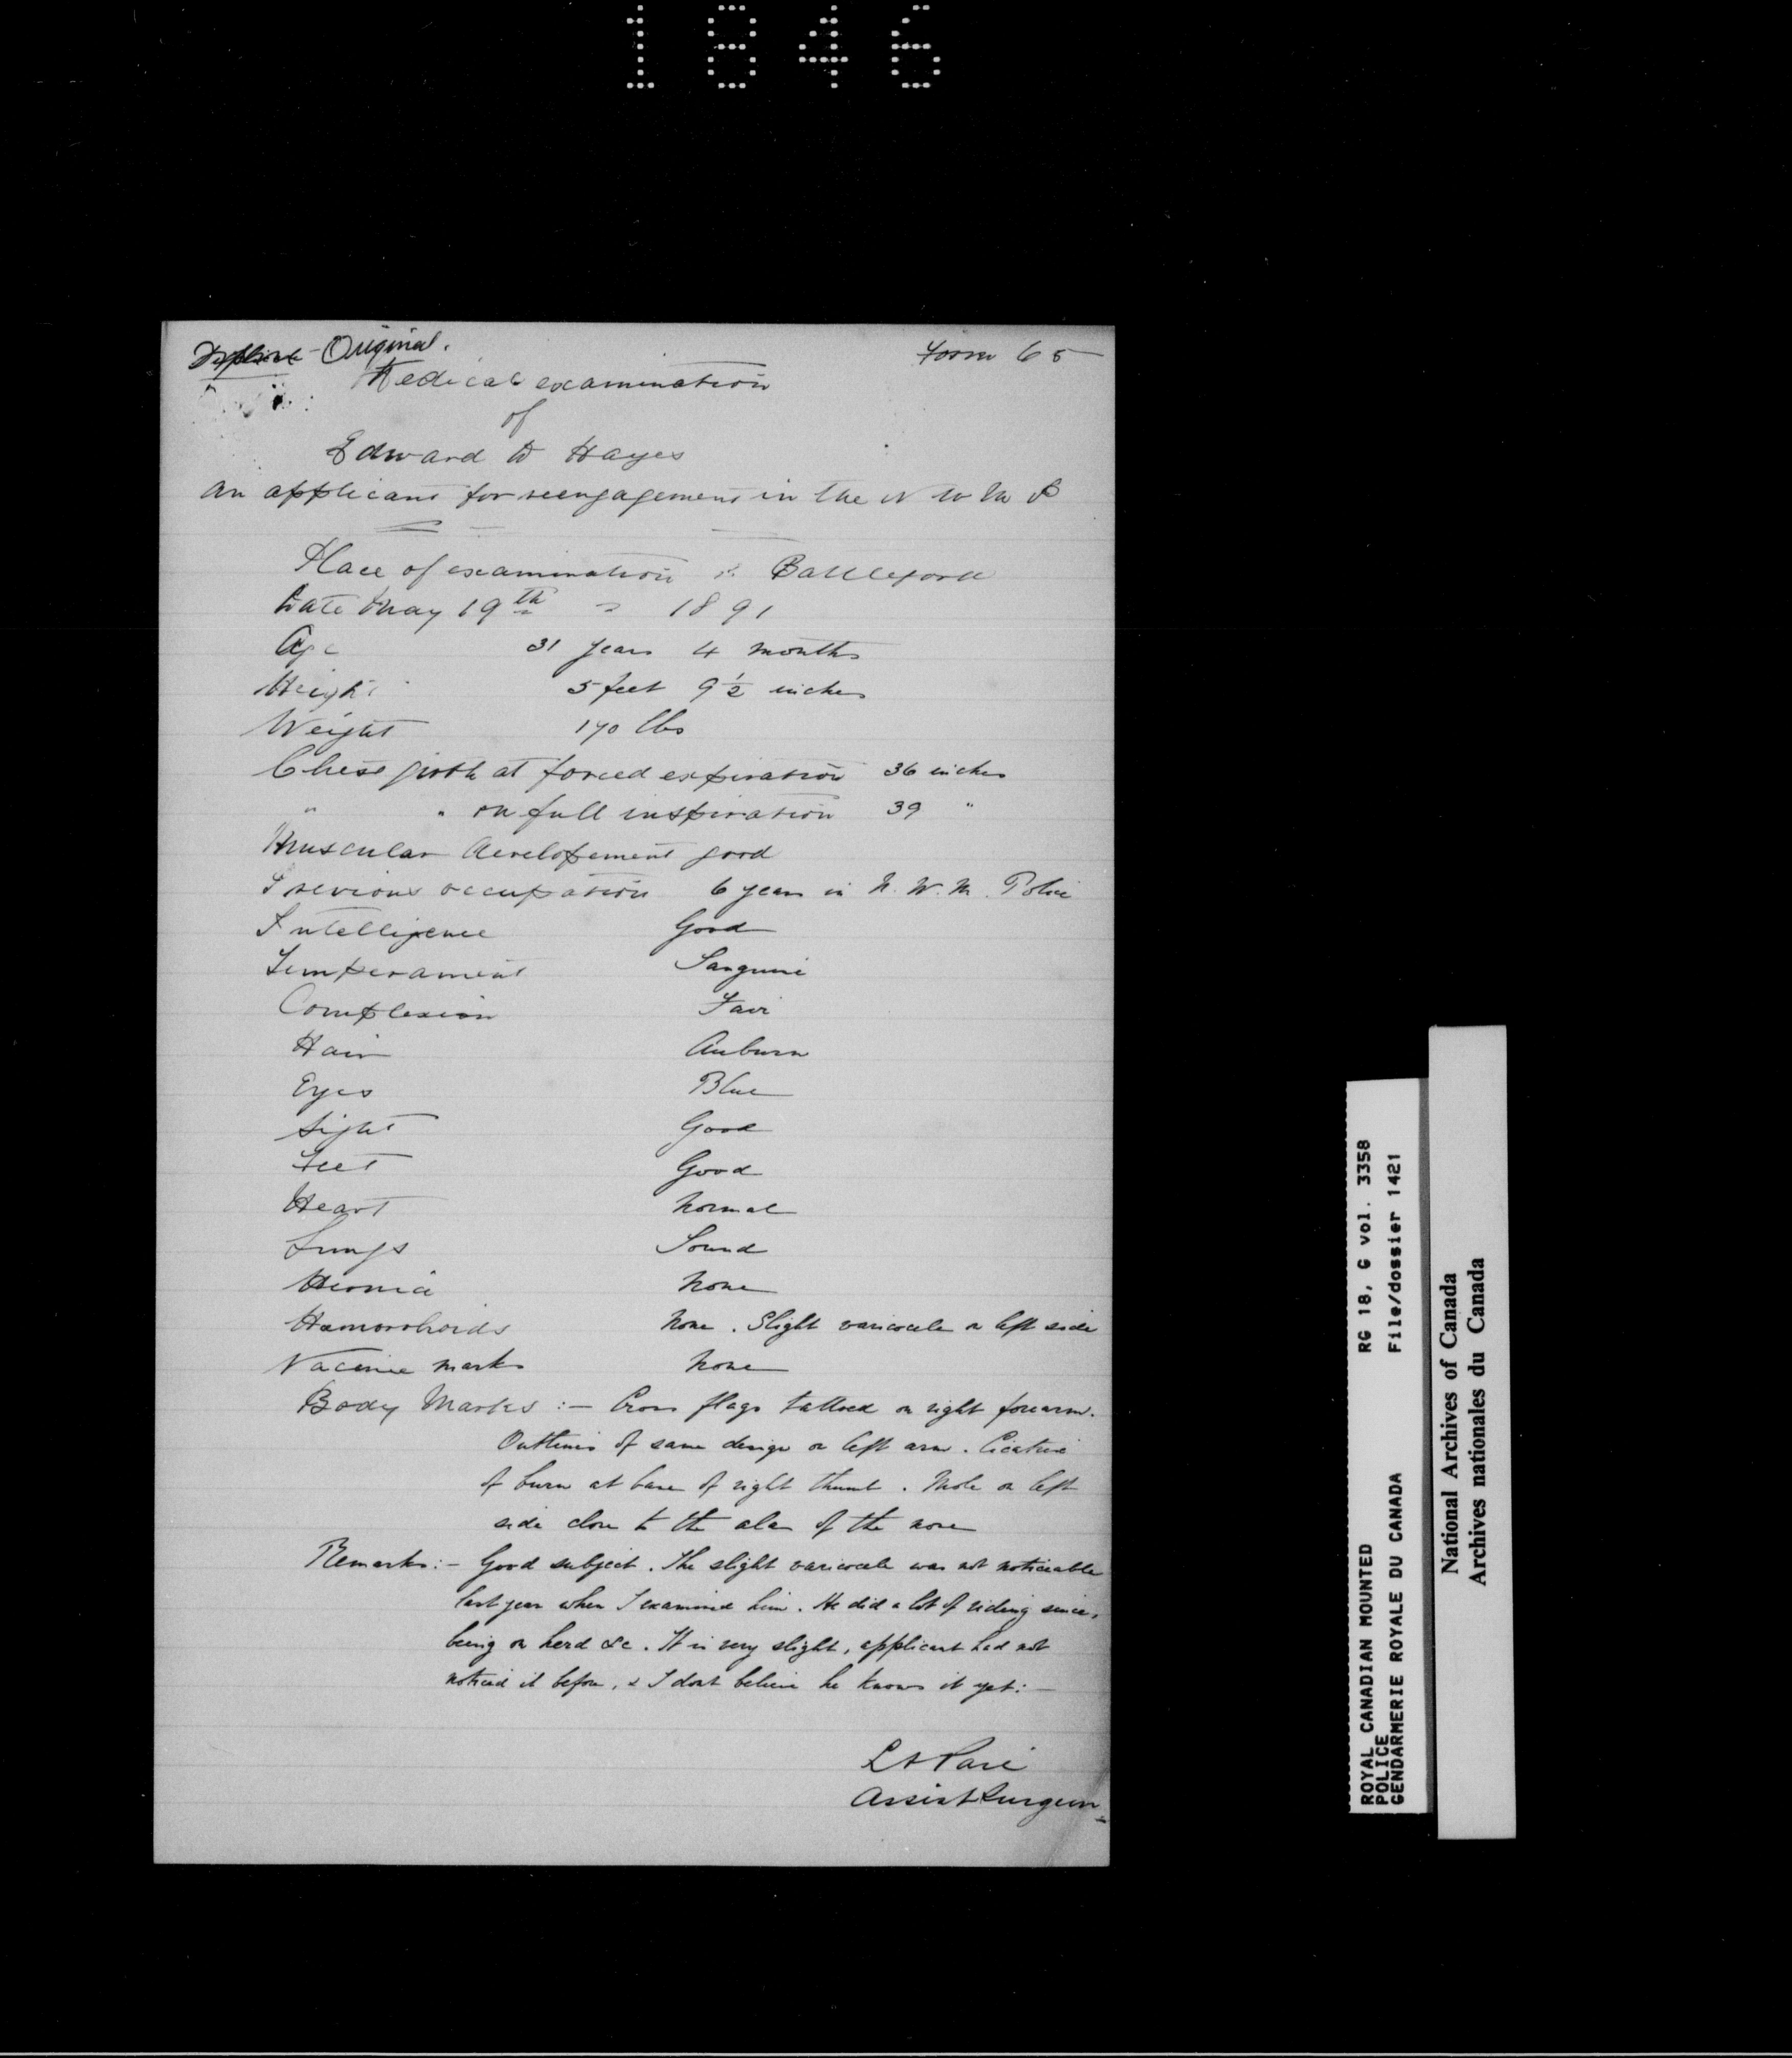 1846
Duplicate Original.
Form 65
Medical examination
of
Edward D Hayes
An applicant for reengagement in the N W M P
Place of examination Battleford
Date May 19th 1891
Age 31 years 4 months
Height 5 feet 9 1/2 inches
Weight 170 lbs
Chest girth at forced expiration 36 inches
" " on full inspiration 39 "
Muscular developement good
Previous occupation 6 years in N. W. M. Police
Intelligence Good
Temperament Sanguine
Complexion Fair
Hair Auburn
Eyes Blue
Sight Good
Feet Good
Heart Normal
Lungs Sound
Hernia None
Hamorrhoids None. Slight varicocele on left side
Vaccine marks None
Body Marks :- Cross flags tattoed on right forearm.
Outlines of same design on left arm. Cicatrice
of burn at base of right thumb. Mole on left
side close to the alae of the nose
Remarks :- Good subject. The slight varicocele was not noticeable
last year when I examined him. He did a lot of riding since,
being on herd &c. It is very slight, applicant had not
noticed it before, & I dont believe he knows it yet :-
L A Paré
Assist Surgeon
ROYAL CANADIAN MOUNTED RG 18, G vol. 3358
POLICE
GENDARMERIE ROYALE DU CANADA File/dossier 1421
National Archives of Canada
Archives nationales du Canada